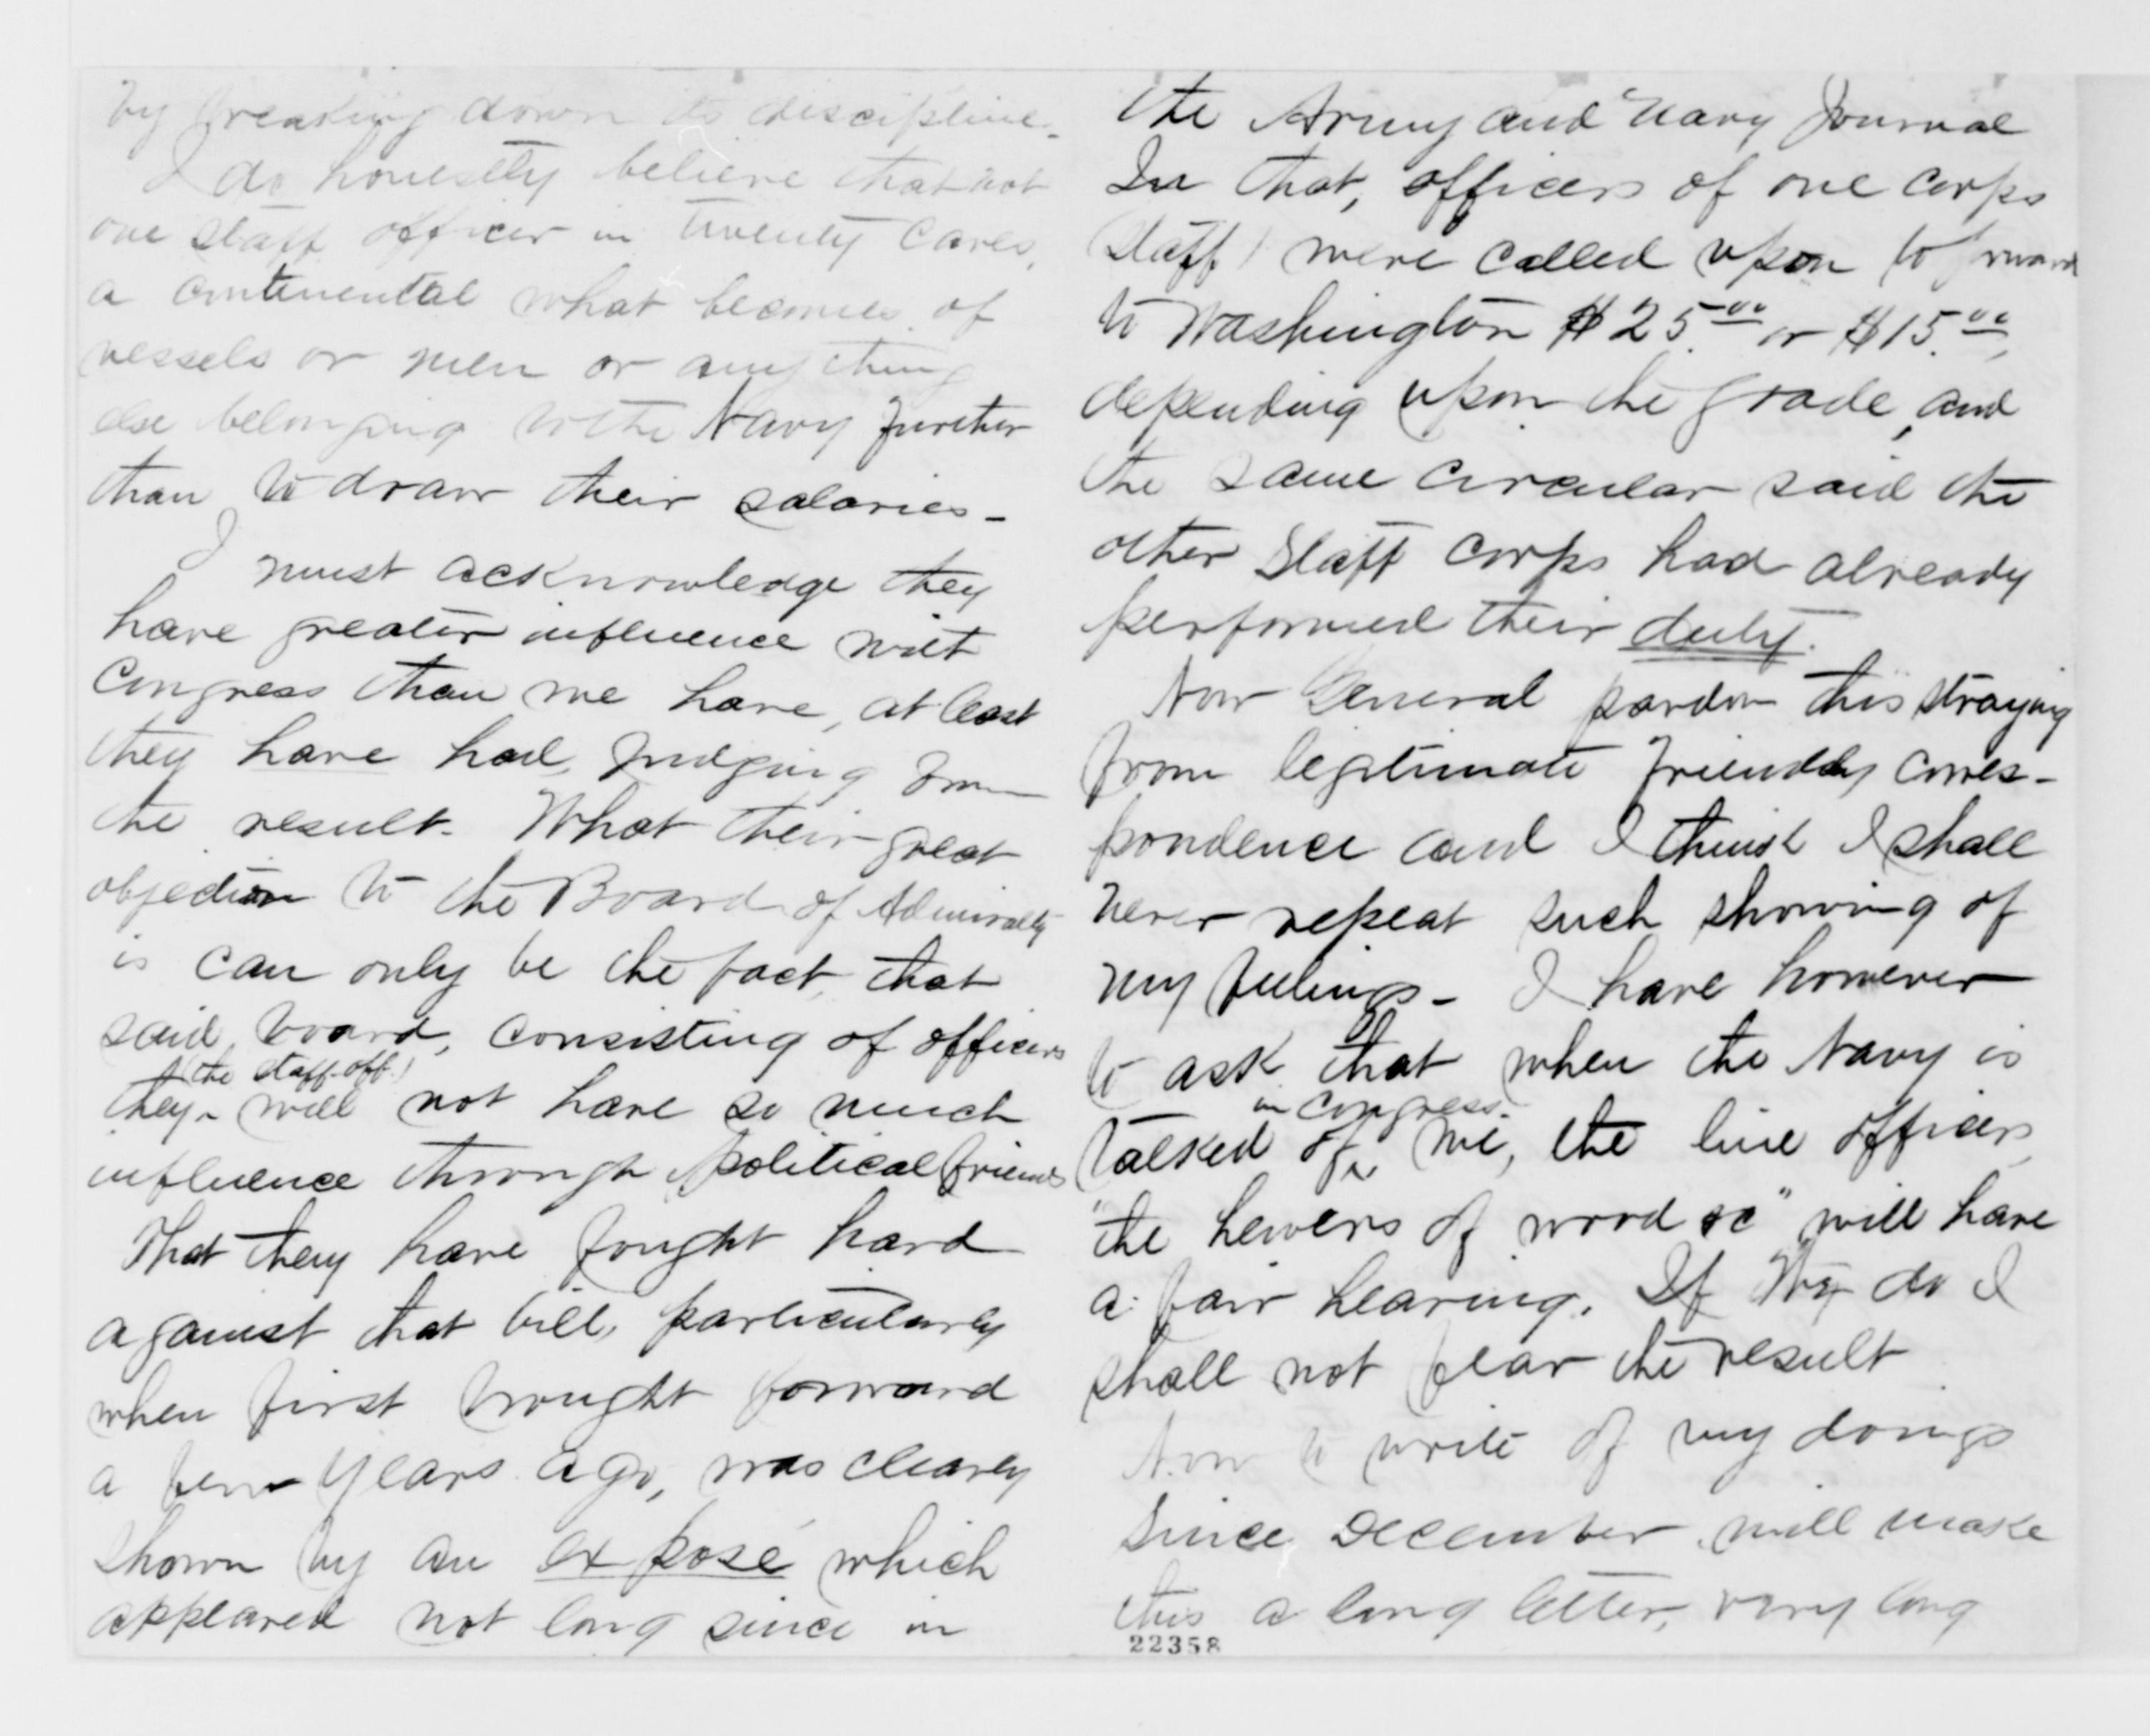 by breaking down its discipline.
I do honestly believe that not
one staff officer in twenty cares,
a continental what becomes of
vessels or men or any thing
else belonging to the Navy further
than to draw their salaries -
I must acknowledge they
have greater influence with
Congress than we have, at least
they have had, judging from
the result. What their great
objection to the Board of Admiralty
is can only be the fact, that
said board, consisting of officers
(the staff off.)
they will not have so much
influence through political friends
That they have fought hard
against that bill, particularly
when first brought forward
a few years ago, was clearly
shown by an exposé which
appeared not long since in
the Army and Navy Journal
In that, officers of one corps
Staff) were called upon to forward
to Washington $25.00 or $15.00,
depending upon the grade, and
the same circular said the
other Staff Corps had already
performed their duty.
Now General pardon this straying
from legitimate friendly corres-
pondence and I think I shall
never repeat such showing of
my feelings - I have however
to ask that when the Navy is
in Congress.
talked of, we, the line officers,
"the hewers of wood &c" will have
a fair hearing. If they do I
shall not fear the result
Now to write of my doings
since December will make
this a long letter, very long
22358